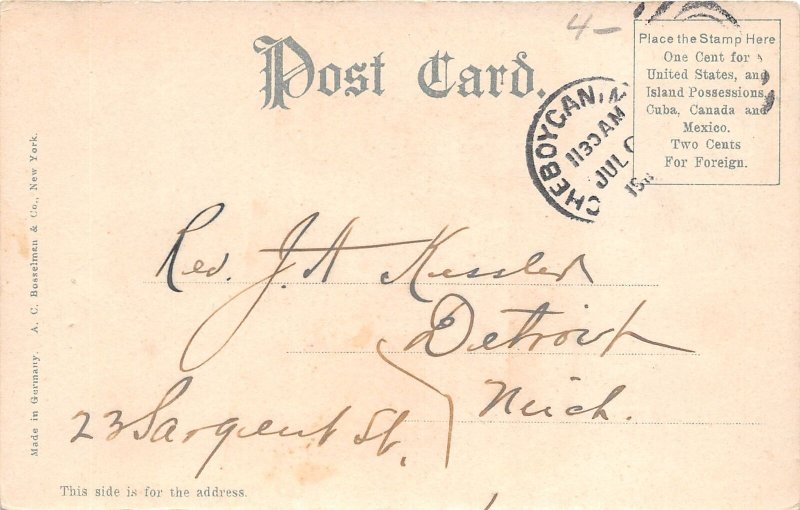 4-
Post Card.
Place the Stamp Here
One Cent for
United States, and
Island Possessions,
Cuba, Canada and
Mexico.
Two Cents
For Foreign.
CHEBOYGAN,
1130 AM
JUL
Rev. J. H Kessler
Detroit
Mich.
23 Sargent St.
This side is for the address.
Made in Germany. A. C. Bosselman & Co., New York.